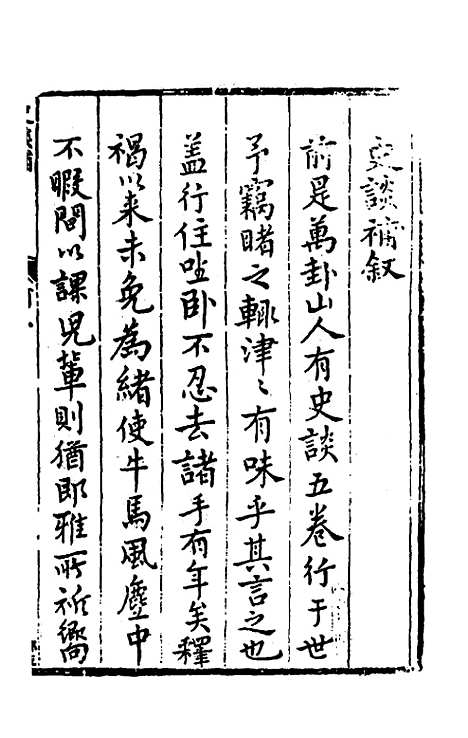 史談補敘
前是萬卦山人有史談五卷行于世
予竊睹之輙津〻有味乎其言之也
盖行住坐卧不忍去諸手有年矣釋
褐以来未免為緒使牛馬風塵中
不暇間以課児軰則猶郎雅所祈嚮